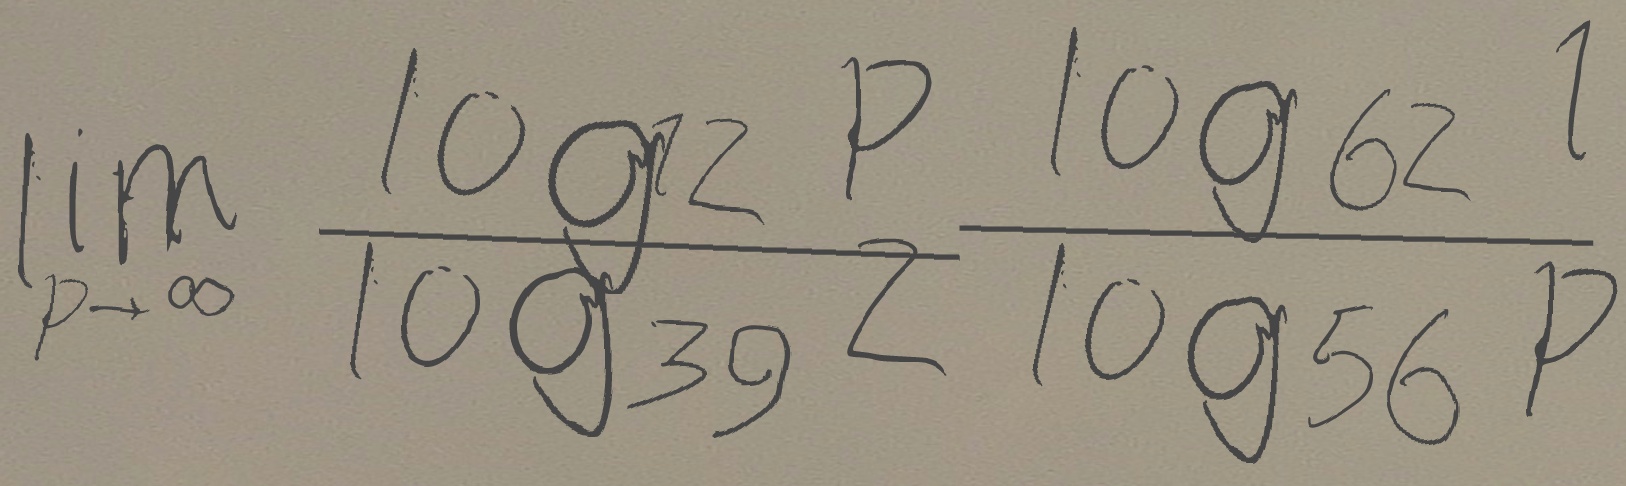 \lim_{p \to \infty} \frac{\log_{12} p}{\log_{39} 2} \frac{\log_{62} 1}{\log_{56} p}